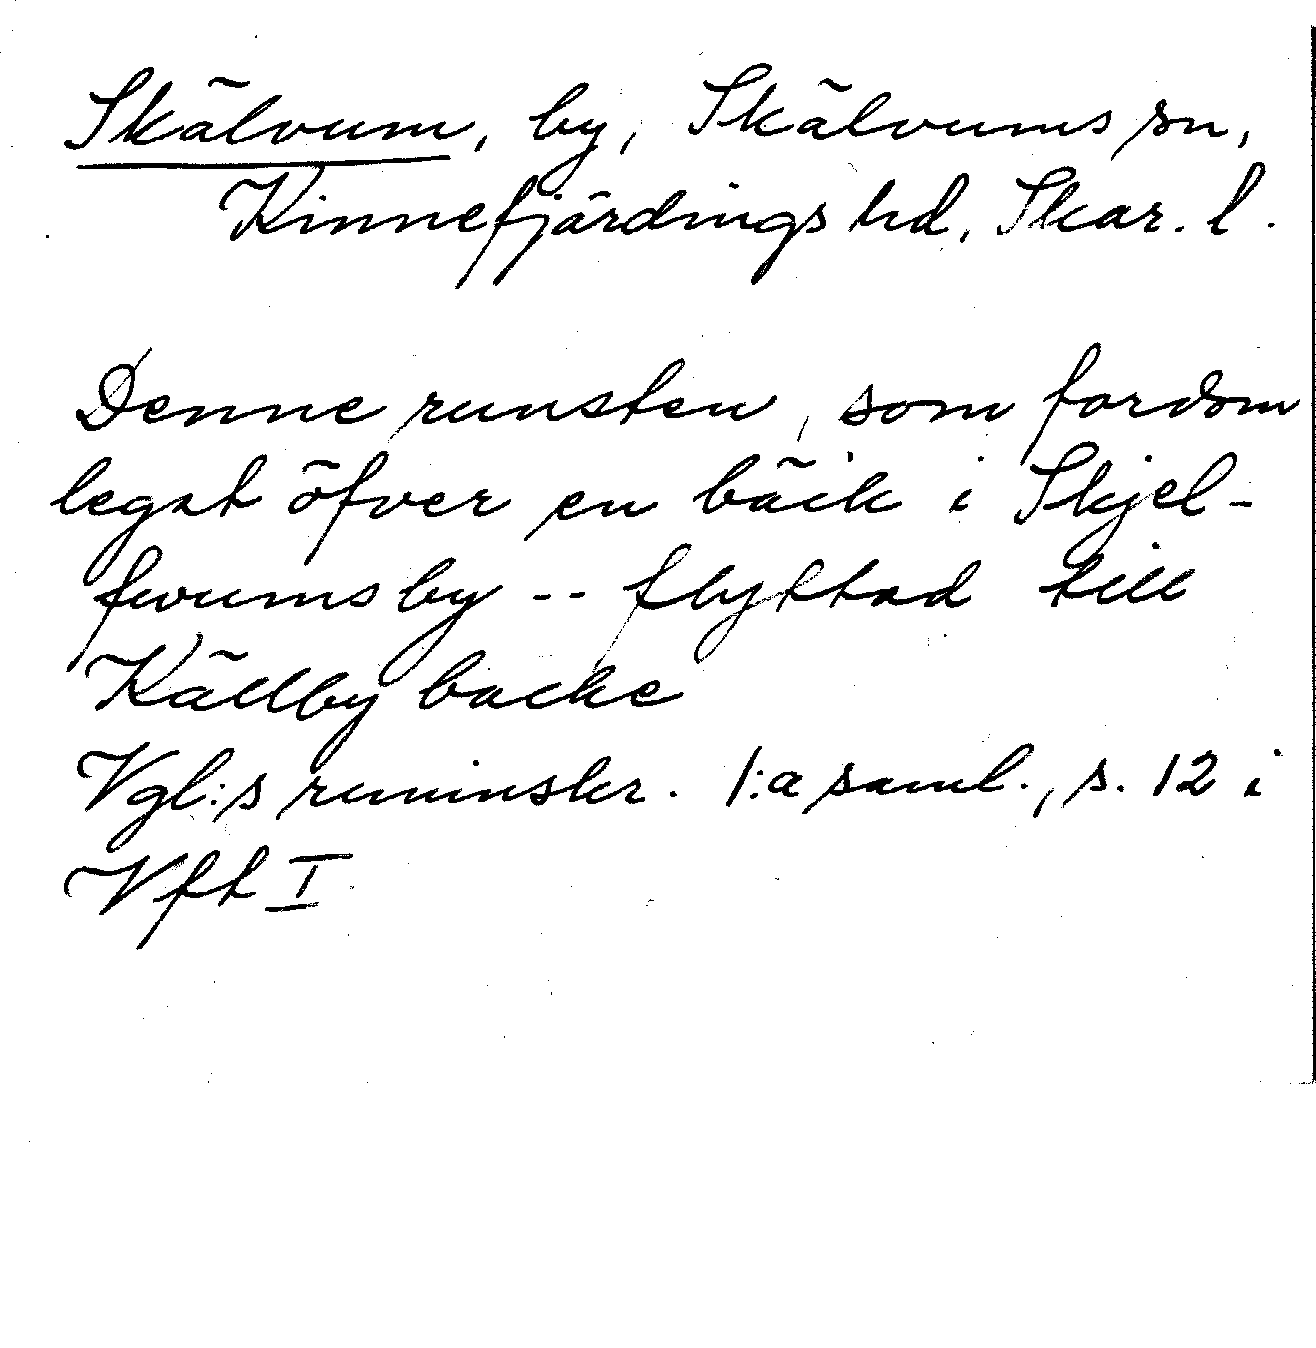 Skälvum, by, Skälvums sn,
Kinnefjärdings hd, Skar. l.
Denne runsten, som fordom
legat öfver en bäck i Skjel-
fwums by -- flyttad till
Källby backe
Vgl:s runinskr. 1:a saml., s. 12 i
Vft I